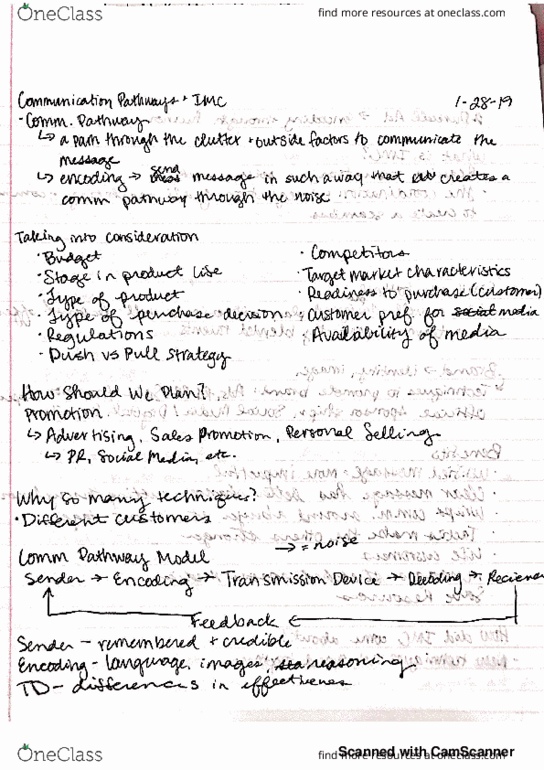 OneClass
find more resources at oneclass.com
Communication Pathways + IMC
1-28-19
· Comm. Pathway
↳ a path through the clutter + outside factors to communicate the
message
↳ encoding → send message in such a way that creates a
comm pathway through the noise
Taking into consideration
· Budget
· Stage in product life
· Type of product
· Type of purchase decision
· Regulations
· Push vs Pull strategy
· Competitors
· Target market characteristics
· Readiness to purchase (customer)
· Customer pref for social media
· Availability of media
How Should We Plan?
Promotion
↳ Advertising, Sales Promotion, Personal Selling
↳ PR, Social Media, etc.
Why so many techniques?
· Different customers
Comm Pathway Model
→ = noise
Sender → Encoding → Transmission Device → Decoding → Reciever
Feedback
Sender - remembered + credible
Encoding - language, images, reasoning
TD - differences in effectiveness
OneClass
find more resources at oneclass.com
Scanned with CamScanner